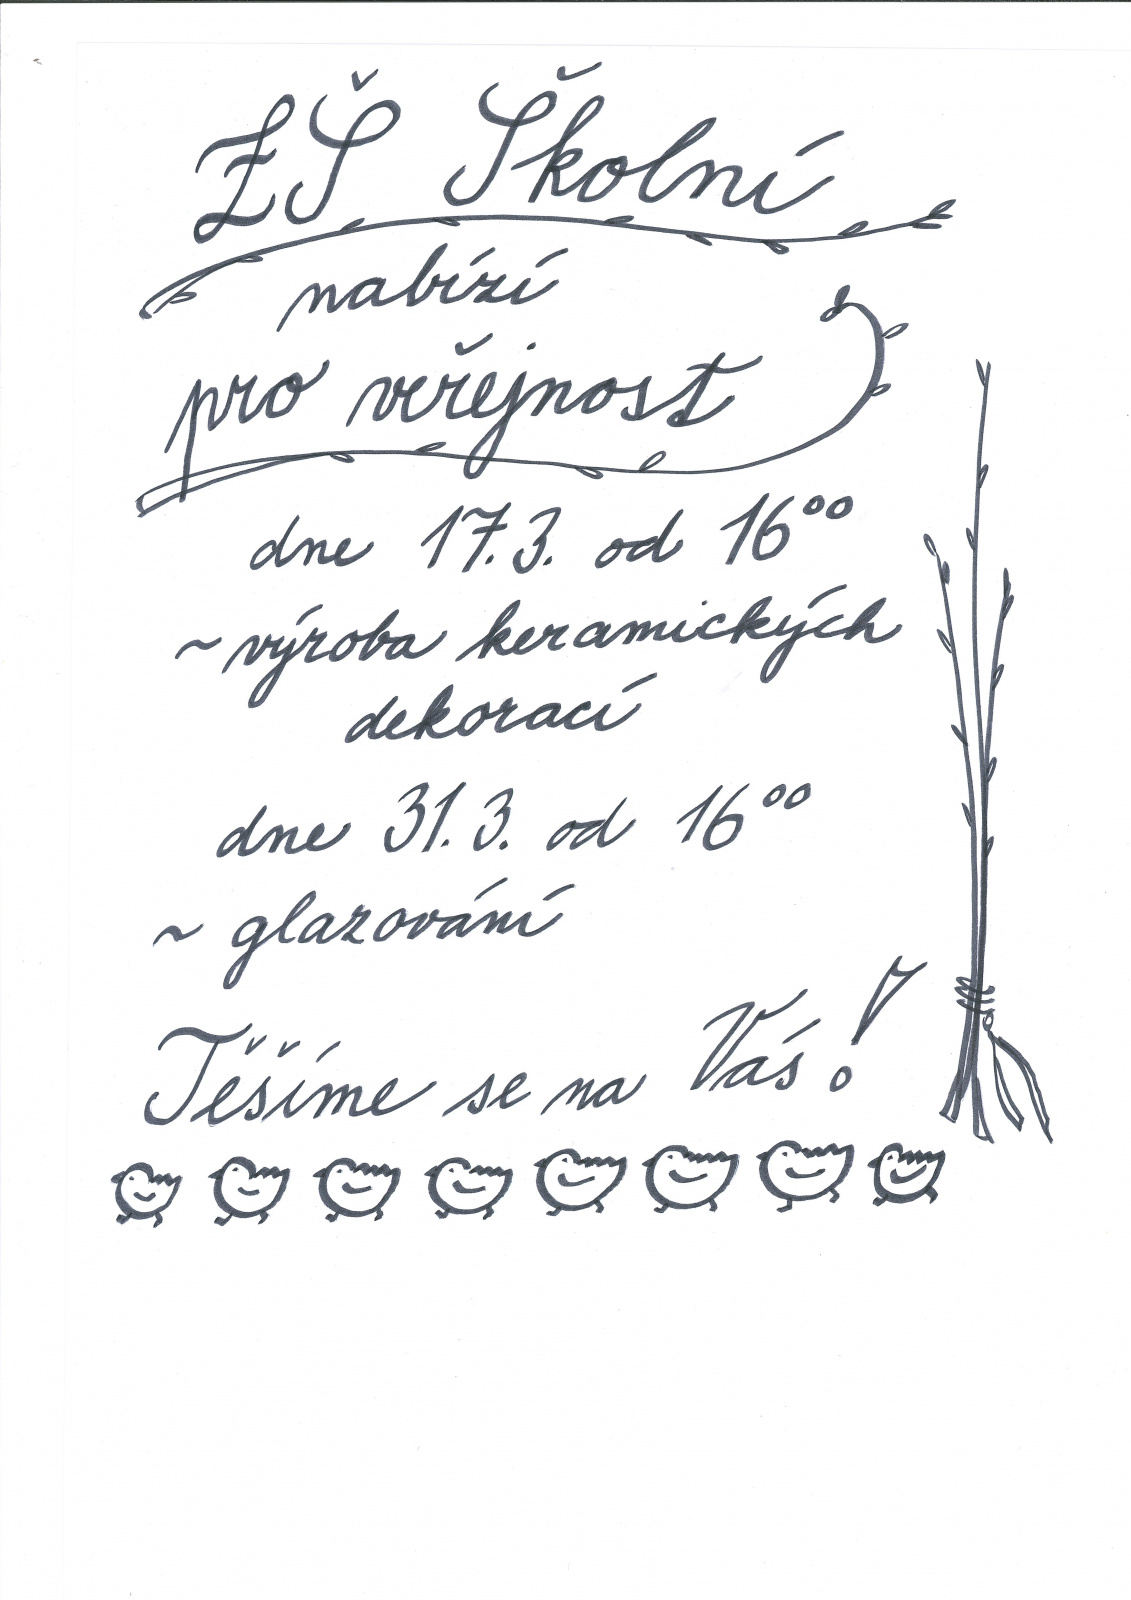 ZŠ Školní
nabízí
pro veřejnost
dne 17.3. od 16⁰⁰
~ výroba keramických
dekorací
dne 31.3. od 16⁰⁰
~ glazování
Těšíme se na Vás!